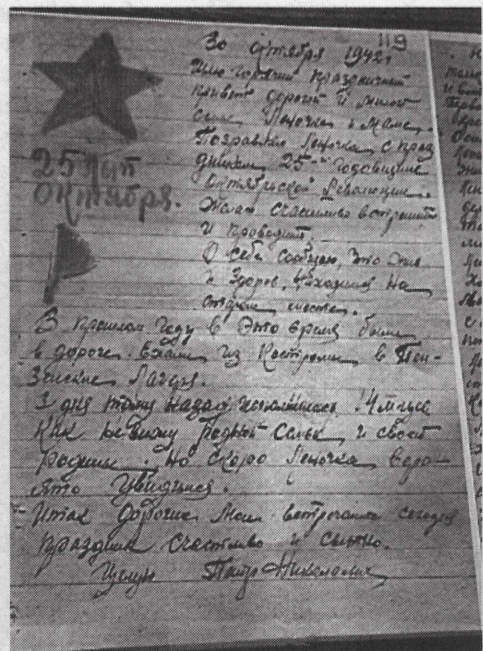 119
30 октября 1942 г
Шлю горячий праздничный
привет дорогой и милой
Леночке и Маме.
Поздравляю Леночка с праз
дником 25-й Годовщиной
Октябрьской Революции.
Желаю счастливо встретить
и проводить.
О себе сообщаю, что жив
и здоров, нахожусь на
старом месте.
25 лет
Октября.
В прошлом году в это время были
в дороге. Ехали из Костромы в Пен-
зенские Лагеря.
3 дня тому назад исполнилось 14 месяцев
как не вижу родной семьи и своей
родины. Но скоро Леночка веро-
ятно увидимся.
Итак дорогие мои встречайте сегодня
праздник счастливо и сытно.
Целую Петр Николаевич